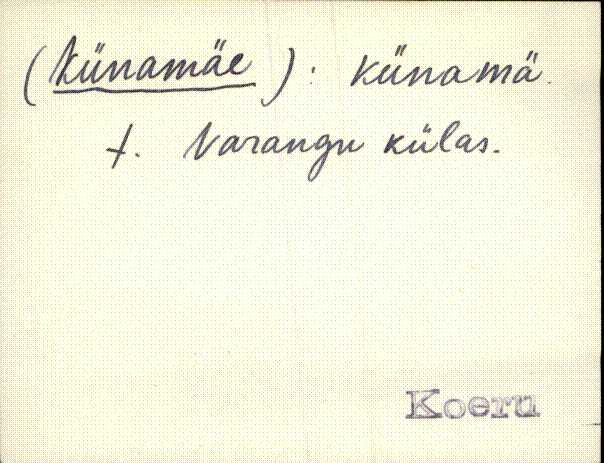 (Künamäe): künamä.
t. Varangu külas.
Koeru